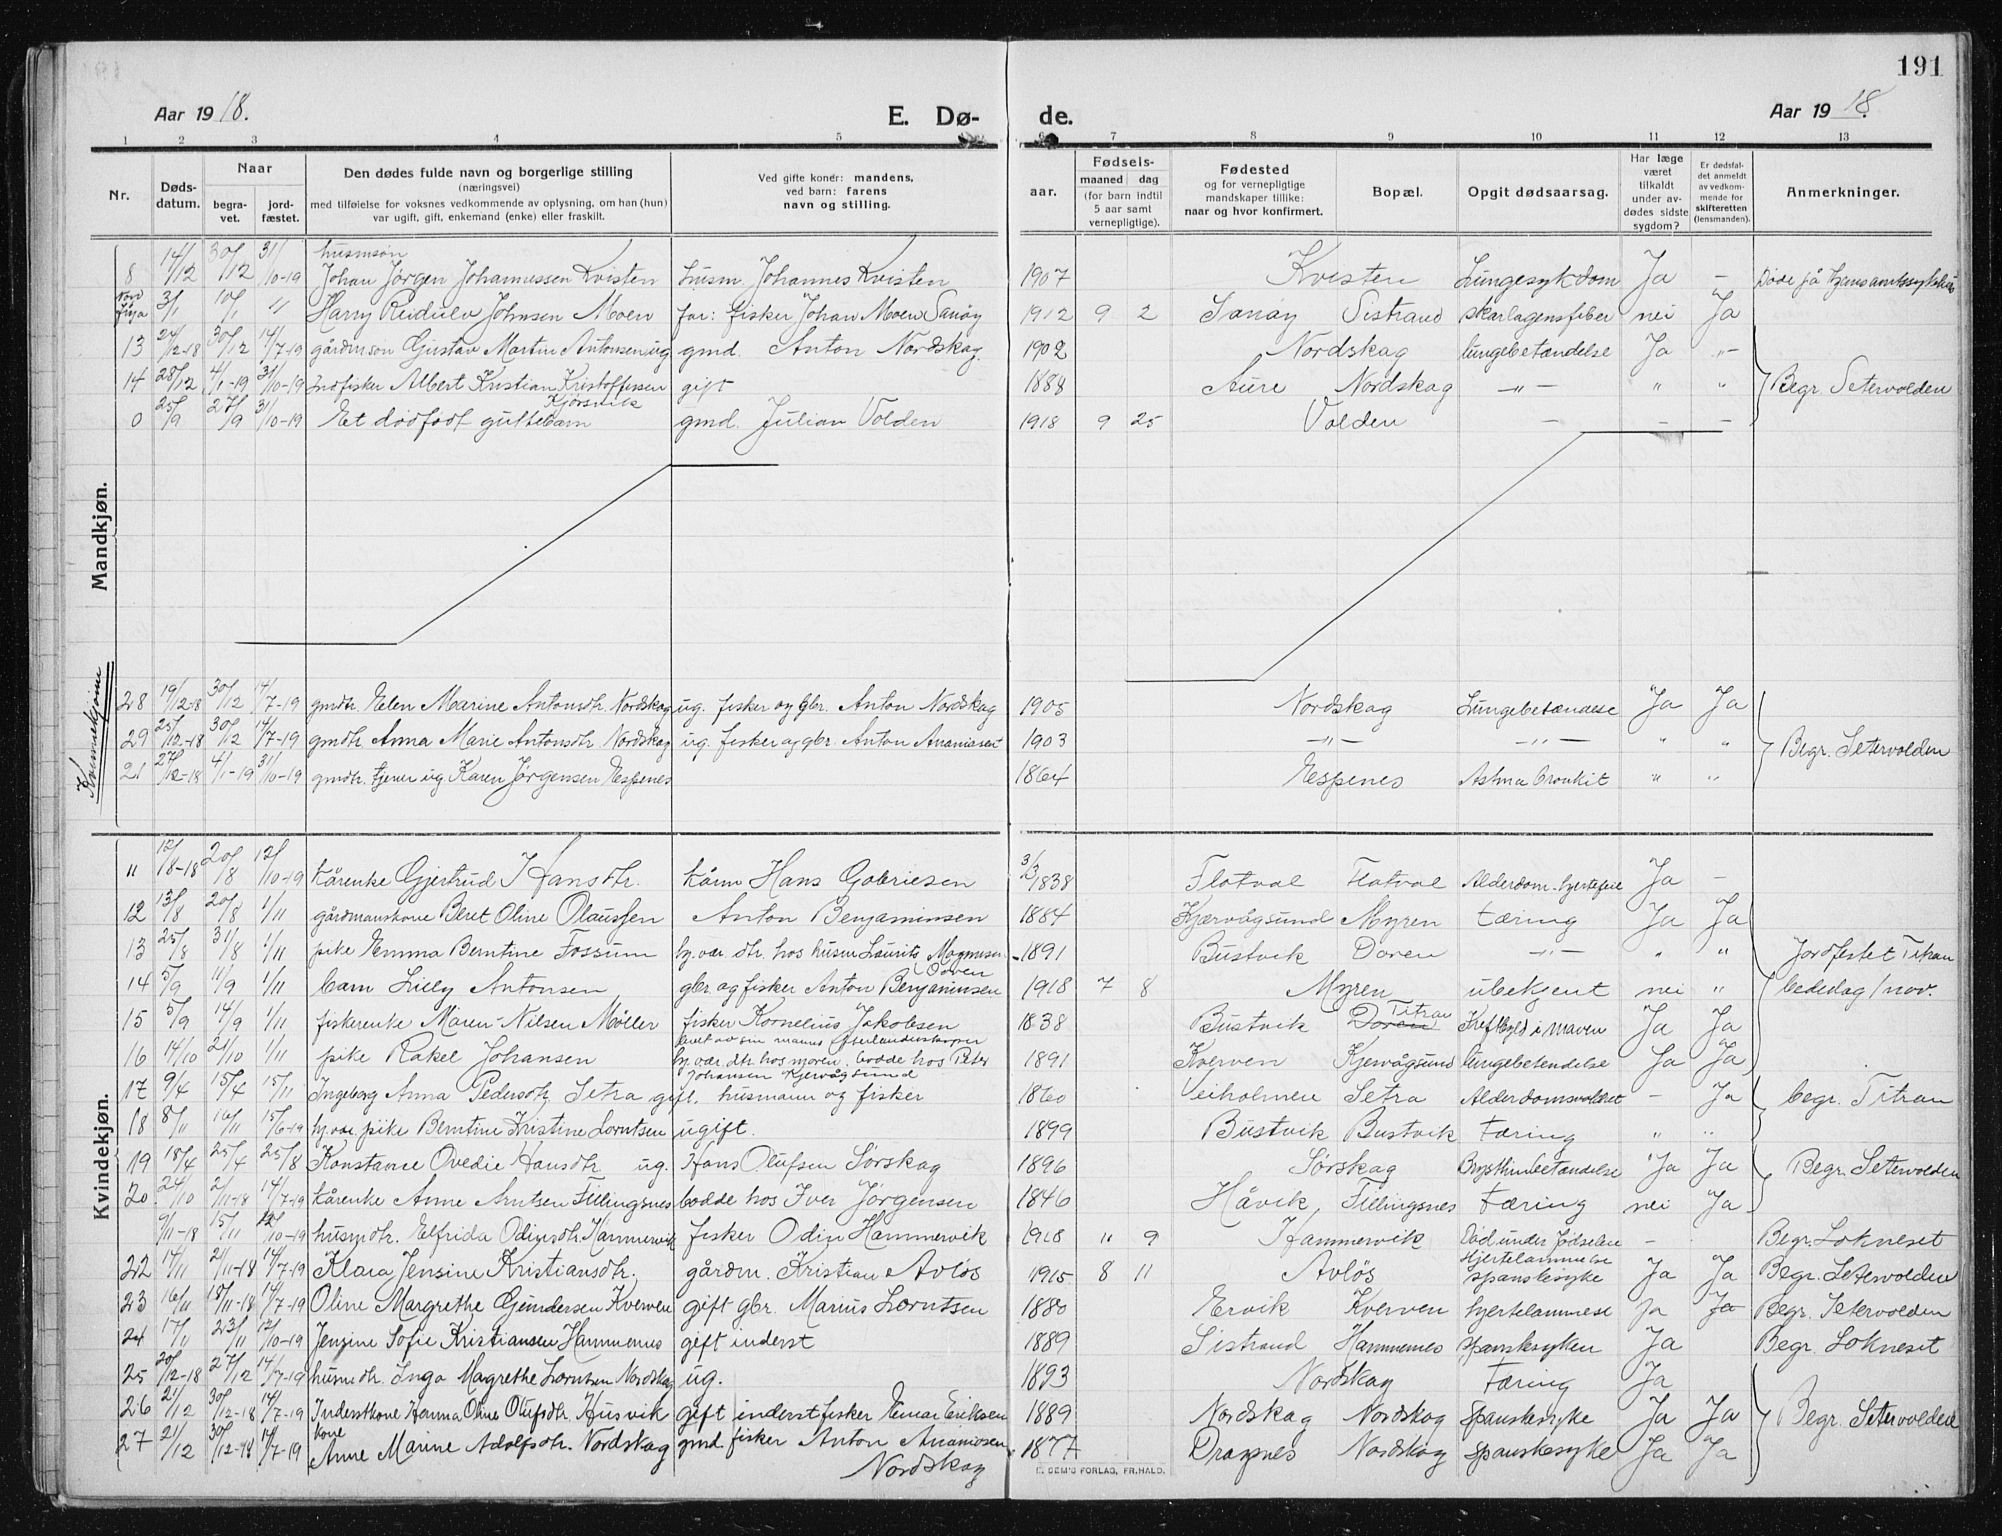 191
Aar 1918.
E. Dø-
de.
Aar 1918.
1 2 3 4 5 6 7 8 9 10 11 12 13
Nr.
Dødsdatum.
Naar
begravet.
jordfæstet.
Den dødes fulde navn og borgerlige stilling
(næringsvei)
med tilføielse for voksnes vedkommende av oplysning, om han (hun)
var ugift, gift, enkemand (enke) eller fraskilt.
Ved gifte koner: mandens,
ved barn: farens
navn og stilling.
aar.
Fødsels-
maaned dag
(for barn indtil
5 aar samt
vernepligtige).
Fødested
og for vernepligtige
mandskaper tillike:
naar og hvor konfirmert.
Bopæl.
Opgit dødsaarsag.
Har læge
været
tilkaldt
under avdødes sidste
sygdom?
Er dødsfaldet anmeldt
av vedkommende for
skifteretten
(lensmanden).
Anmerkninger.
Mandkjøn.
8 14/12 30/12 31/10-19 husmsøn Johan Jørgen Johannessen Kvisten husm. Johannes Kvisten 1907 Kvisten Lungesykdom Ja -
3/1 10/1 " Harry Reidulv Johnsen Moen far: fisker Johan Moen Sanøy 1912 9 2 Sanøy Sistrand skarlagensfeber nei Ja
13 24/12-18 30/12 14/7-19 gårdmson Gustav Martin Antonsen ug gmd. Anton Nordskag. 1902 Nordskag lungebetændelse Ja "-
14 28/12 4/1-19 31/10-19 Indfisker Albert Kristian Kristoffersen Kjørsvik gift 1888 Aure Nordskag -"- " " Begr. Setervolden
0 25/9 27/9 31/10-19 Et dødfødt guttebarn gmd. Julian Volden 1918 9 25 Volden - - -
Kvinnekjønn
28 19/12-18 30/12 14/7-19 gmdtr. Elen Marine Antonsdtr. Nordskag ug. fisker og gbr. Anton Nordskag 1905 Nordskag Lungebetændese Ja Ja
29 25/12-18 30/12 14/7-19 gmdtr Anna Marie Antonsdtr. Nordskag ug. fisker og gbr. Anton Ananiassen 1903 -"- -"- " " Begr. Setervolden
21 27/12-18 4/1-19 31/10-19 gmdtr. tjener ug Karen Jørgensen Espenes 1864 Espenes Astma bronkit " "
Kvindekjøn.
11 12/8-18 20/8 12/10-19 kårenke Gjertrud Hansdtr. kårm Hans Gabrielsen 3/3 1838 Flatval Flatval Alderdom-hjertefeil Ja -
12 13/8 20/8 1/11 gårdmanskone Beret Oline Olaussen Anton Benjaminsen 1884 Kjærvågsund Myren tæring Ja Ja
13 25/8 31/8 1/11 pike Emma Berntine Fossum hj. vær. dtr. hos husm Laurits Magnusen Doren 1891 Bustvik Doren -"- " " Jordfestet Titran
14 5/9 11/9 1/11 barn Lilly Antonsen gbr. og fisker Anton Benjaminsen 1918 7 8 Myren ubekjent nei " bededag 1 nov.
15 5/9 14/9 1/11 fiskerenke Maren Nilsen Møller fisker Kornelius Jakobsen 1838 Bustvik Doren Titran Kreftbyld i maven Ja Ja
levet av sin manns efterlatenskaper
16 14/10 21/10 1/11 pike Rakel Johansen hj. vær. dtr. hos moren, bodde hos Peter Johansen Kjervågsund 1891 Kverven Kjervågsund lungebetendelse Ja Ja
17 9/4 15/4 15/11 Ingeborg Anna Pedersdtr. Setra gift. husmann og fisker 1860 Veiholmen Setra Alderdomsvakhet - Ja begr. Titran
18 8/11 16/11 15/6-19 hj. vær. pike Berntine Kristine Lorntsen ugift. 1899 Bustvik Bustvik Tæring " "
19 18/4 25/4 25/8 Konstanse Ovedie Hansdtr ug. Hans Olufsen Sørskag 1896 Sørskag Brysthinbetændelse Ja Ja Begr. Setervolden
20 24/10 2/11-18 14/7-19 kårenke Anne Arntsen Fillingsnes bodde hos Iver Jørgensen 1846 Håvik Fillingsnes Tæring nei Ja
9/11-18 15/11 12/10-19 husmdtr. Elfrida Odinsdtr. Hammervik fisker Odin Hammervik 1918 " 9 Hammervik Død under fødselen - Begr. Lokneset
22 14/11 21/11-18 14/7-19 Klara Jensine Kristiansdtr. gårdm. Kristian Avløs 1915 8 11 Avløs Hjertelammelse spanskesyke Ja Ja Begr. Setervolden
23 16/11 18/11-18 14/7-19 Oline Margrethe Gundersen Kverven gift gbr. Marius Lorntsen 1880 Ervik Kverven hjertelammese Ja Ja Begr. Setervolden
24 17/11 23/11 12/10-19 Jenzine Sofie Kristiansen Hammernes gift inderst 1889 Sistrand Hammernes Spanskesyken Ja Begr. Lokneset
25 20/12-18 27/12 14/7-19 husmdtr. Inga Magrethe Lorntsen Nordskag ug. 1893 Nordskag Tæring Ja
26 21/12 30/12-18 14/7-19 Inderstkone Hanna Oline Olufsdtr. Husvik gift inderst fisker Einar Eriksen 1889 Nordskag Nordskag Spanskesyke Ja Ja Begr. Setervolden
27 21/12 30/12-18 14/7-19 kone Anne Marine Adolfsdtr. Nordskag gmd. fisker Anton Ananiasen Nordskag 1877 Dragsnes Nordskag spanskesyke Ja Ja
E. SEM'S FORLAG, FR.HALD.